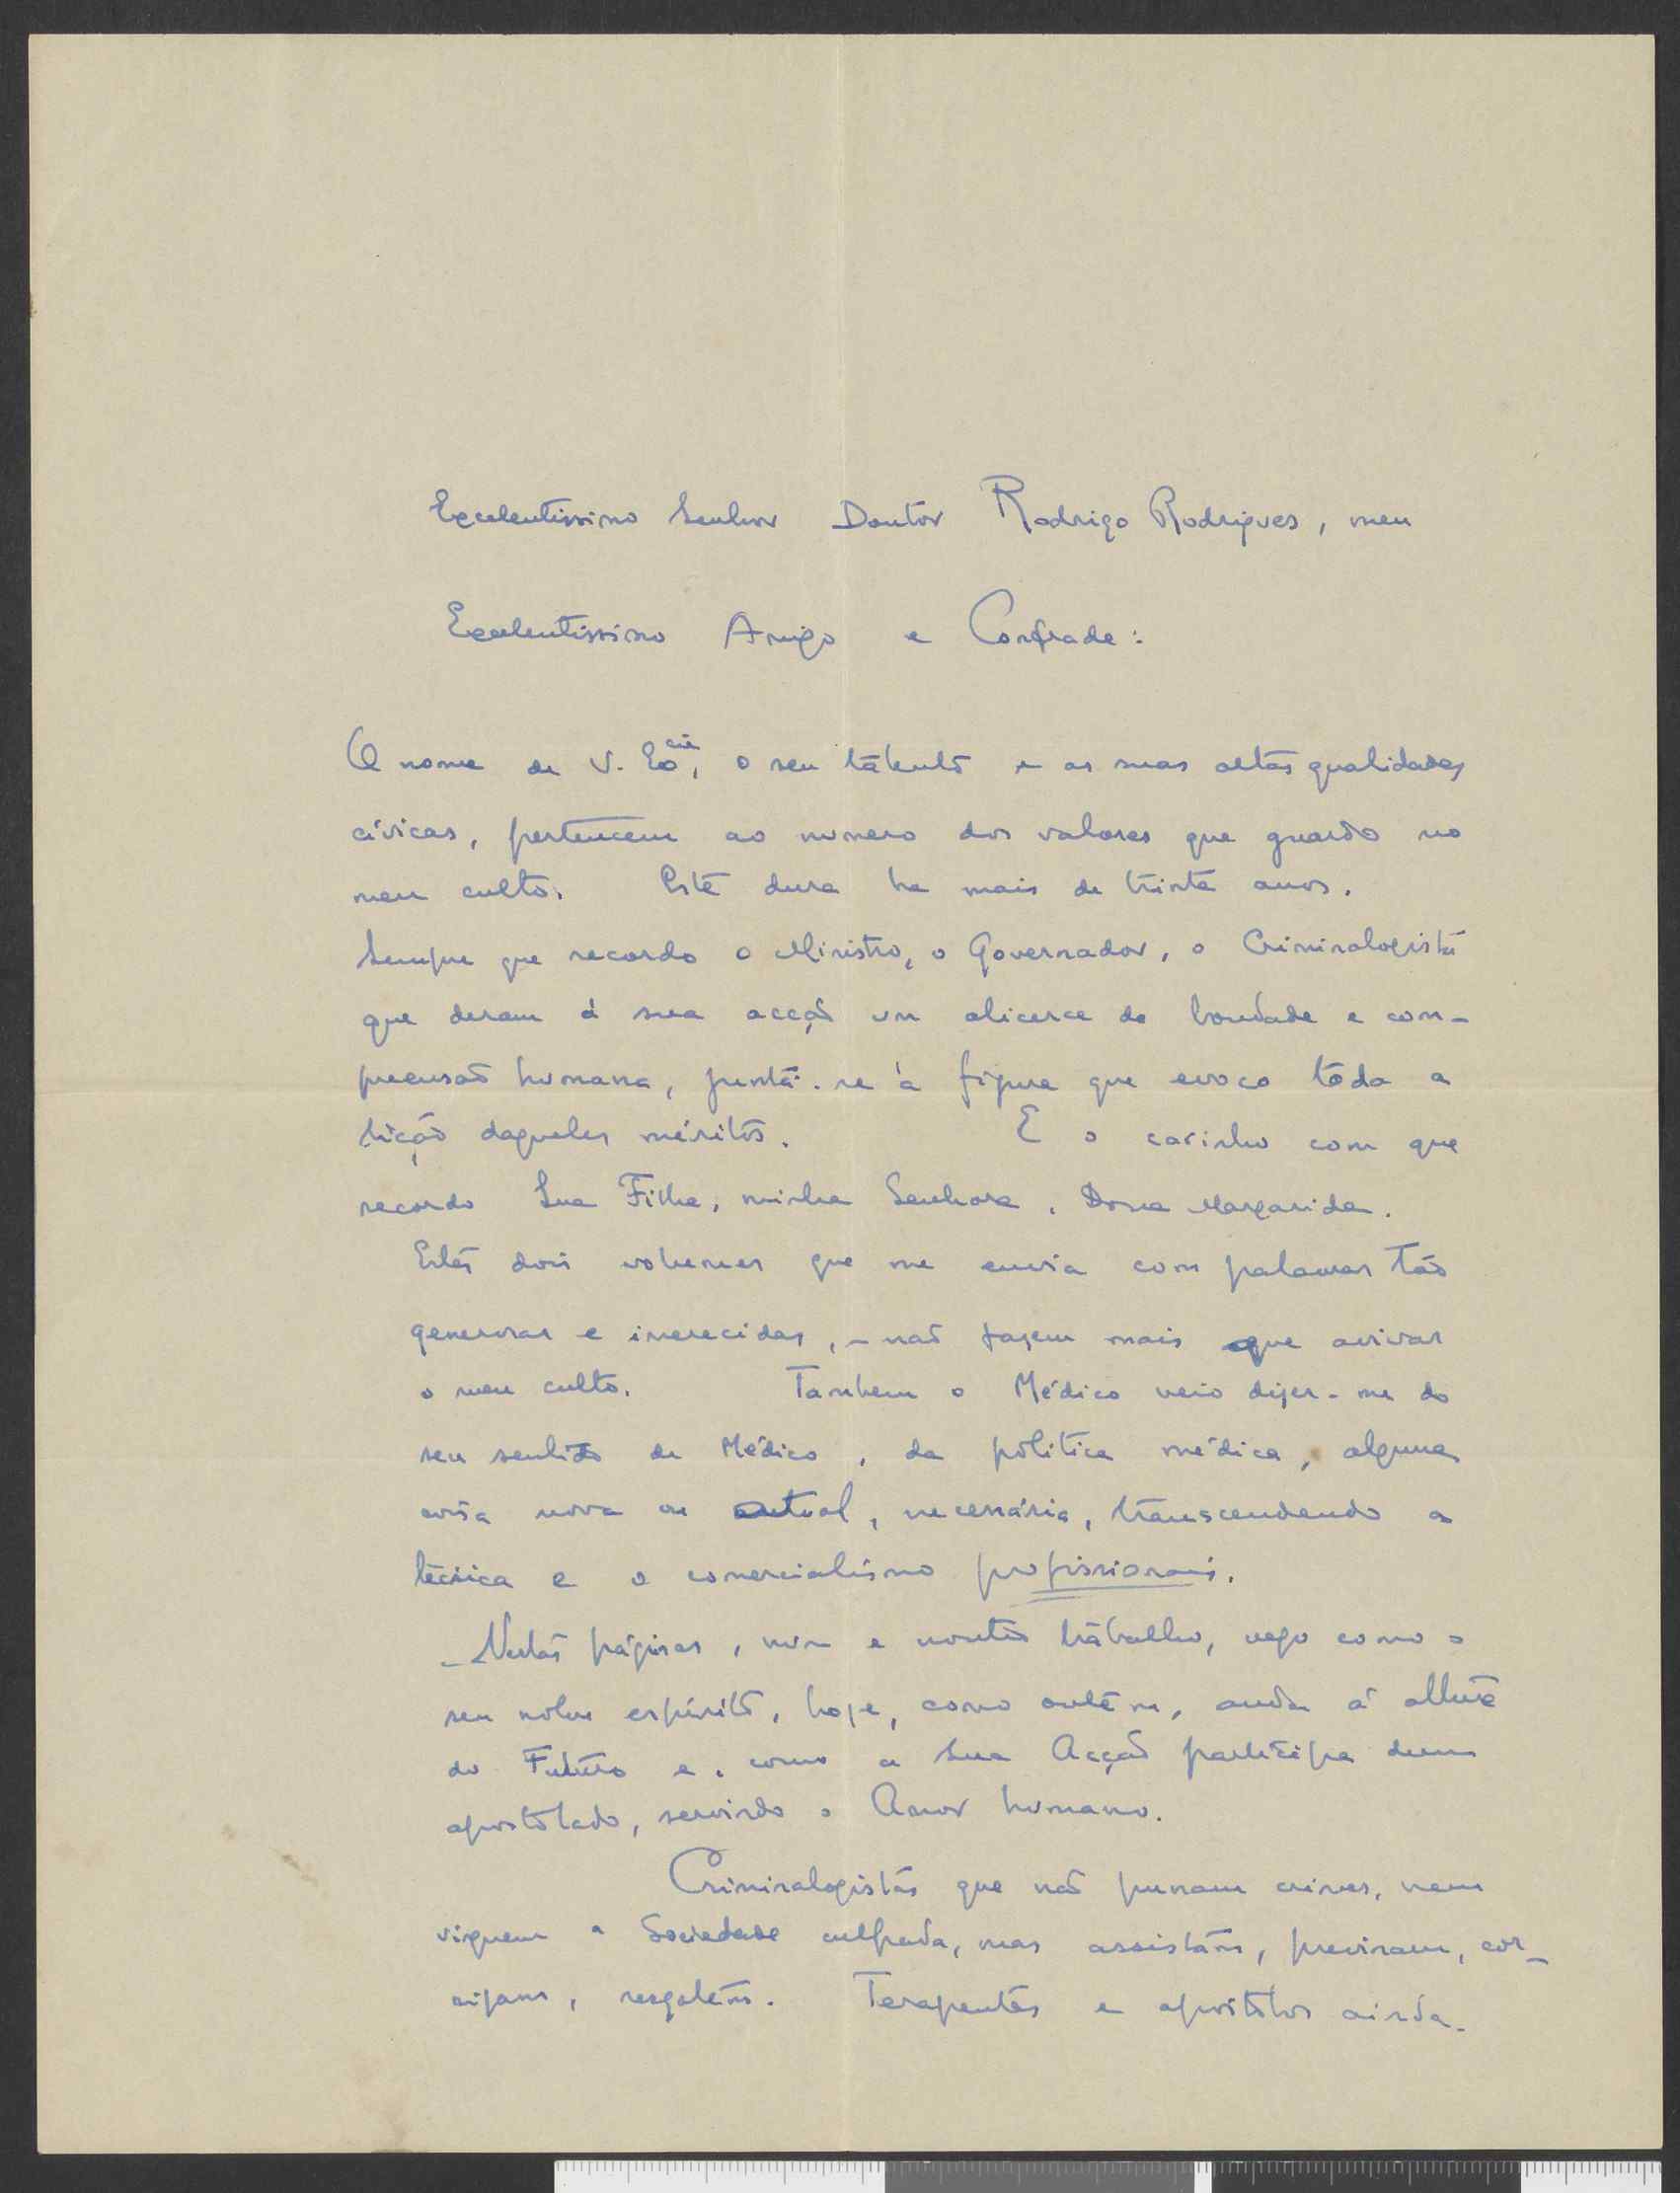 Excelentissimo Senhor Doutor Rodrigo Rodrigues, meu
Excelentissimo Amigo e Confrade:
O nome de V. Excia, o seu talento e as suas altas qualidades
cívicas, pertencem ao numero dos valores que guardo no
meu culto. Este dura ha mais de trinta anos.
Sempre que recordo o Ministro, o Governador, o Criminalogista
que deram á sua acção um alicerce de bondade e com-
preensão humana, junta-se á figura que evoco tôda a
lição daqueles méritos. E o carinho com que
recordo Sua Filha, minha Senhora, Dona Margarida.
Estes dois volumes que me envia com palavras tão
generosas e imerecidas, - não fazem mais que avivar
o meu culto. Tambem o Médico veio dizer-me do
seu sentido de Médico, da política médica, alguma
coisa nova ou actual, necessária, transcendendo a
técnica e o comercialismo profissionais.
- Nestas páginas, num e noutro trabalho, vejo como o
seu nobre espírito, hoje, como ontem, anda á altura
do Futuro e, como a Sua Acção participa dum
apostolado, servindo o Amor humano.
Criminalogistas que não punam crimes, nem
vinguem a Sociedade culpada, mas assistam, previnam, cor-
rijam, resgatem. Terapeutas e apóstolos ainda.